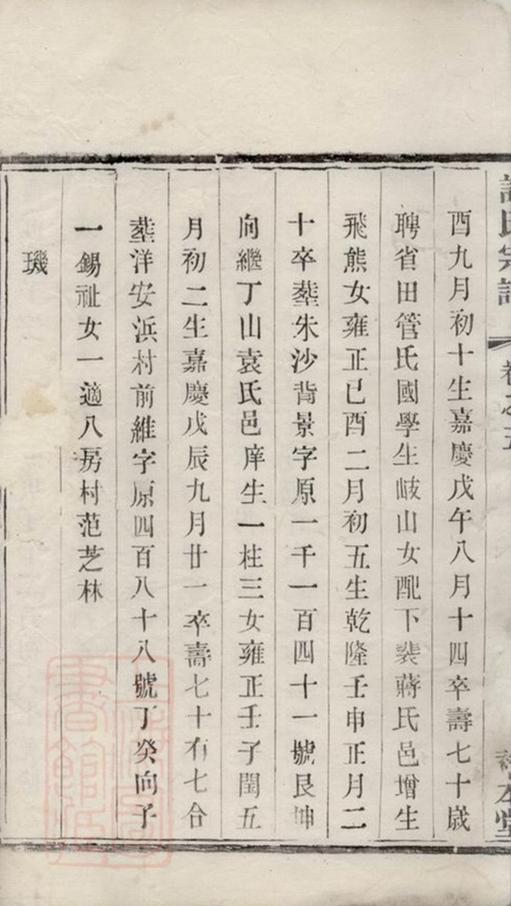 酉九月初十生嘉慶戊午八月十四卒壽七十歲
聘省田管氏國學生岐山女配下裴蔣氏邑增生
飛熊女雍正己酉二月初五生乾隆壬申正月二
十卒塟朱沙背景字原一千一百四十一號艮坤
向繼丁山袁氏邑庠生一柱三女雍正壬子閏五
月初二生嘉慶戊辰九月廿一卒壽七十有七合
塟洋安浜村前維字原四百八十八號丁癸向子
一錫祉女一適八房村范芝林
璣